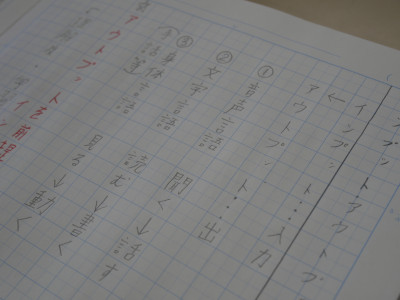 ンプットアウトプ
インプット…入力
↓
アウトプット…出
①音声言語 聞く→話す
②文字言語 読む→書く
③身体言語 見る→動く
アウトプットを前提
イン